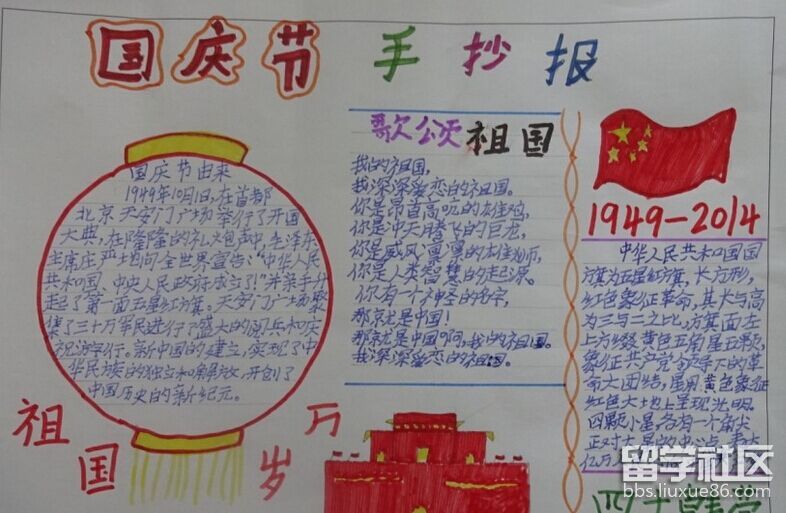 国庆节 手抄报
国庆节由来
1949年10月1日,在首都
北京天安门广场举行了开国
大典,在隆隆的礼炮声中,毛泽东
主席庄严地向全世界宣告:“中华人民
共和国、中央人民政府成立了!”并亲手升
起了第一面五星红旗。天安门广场聚
集了三十万军民进行了盛大的阅兵和庆
祝游行。新中国的建立,实现了中
华民族的独立和解放,开创了
中国历史的新纪元。
祖国万岁
歌颂祖国
我的祖国,
我深深爱恋的祖国。
你是昂首高吭的雄鸡,
你是冲天腾飞的巨龙,
你是威风凛凛的雄狮,
你是人类智慧的起源。
你有一个神圣的名字,
那就是中国!
那就是中国啊,我的祖国。
我深深爱恋的祖国。
1949-2014
中华人民共和国国
旗为五星红旗,长方形,
红色象征革命,其长与高
为三与二之比,旗面左
上方缀黄色五角星五颗,
象征共产党领导下的革
命大团结,星用黄色象征
红色大地上呈现光明。
四颗小星各有一个角尖
正对大星的中心点,
亿万
留学社区
bbs.liuxue86.com